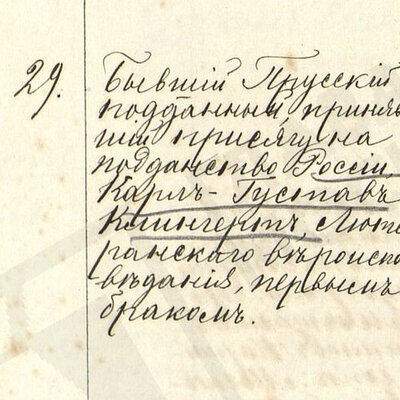 29. Бывшій Прусскій
подданный, приняв
шій присягу на
подданство Россіи,
Карлъ-Густавъ
Клингертъ, Люте
ранскаго вѣроиспо
вѣданія, первымъ
бракомъ.